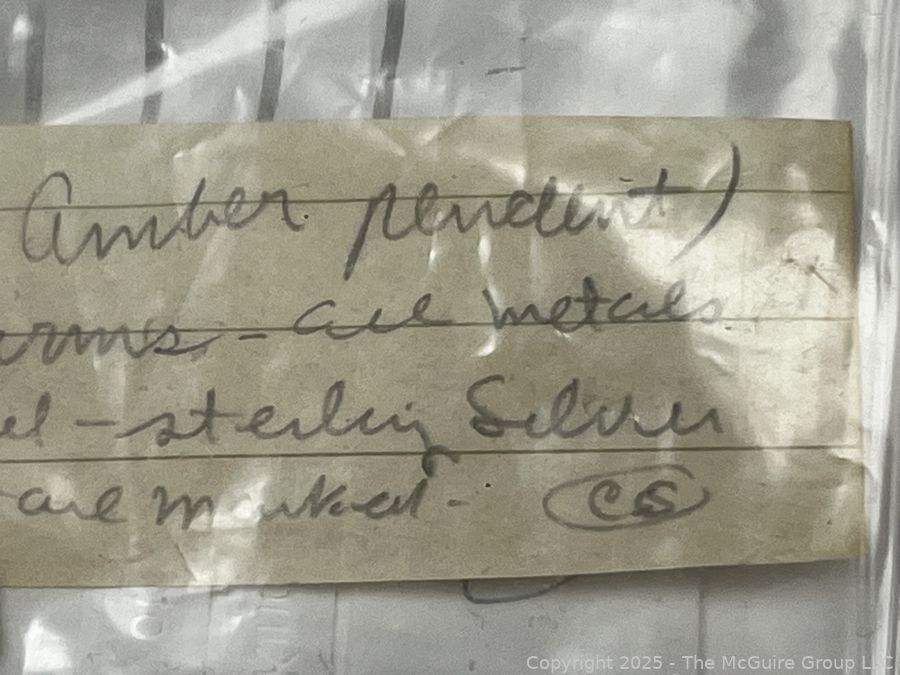 Amber pendent)
erms - all metals
el - sterling Silver
- are marked - CS
Copyright 2025 - The McGuire Group LLC